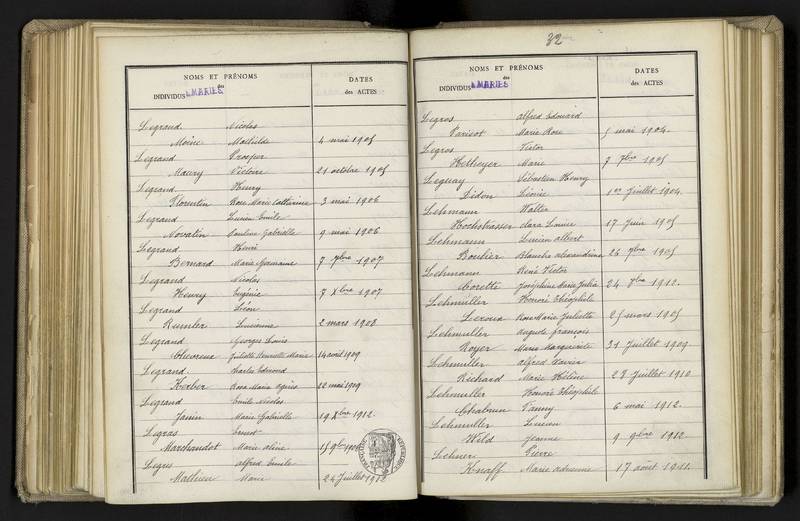 NOMS ET PRÉNOMS
des
INDIVIDUS MARIÉS
DATES
des ACTES
Legrand Nicolas
Moine Mathilde 4 mai 1905
Legrand Prosper
Maury Victoire 21 octobre 1905
Legrand Henry
Florentin Rose Marie Catherine 3 mai 1906
Legrand Lucien Emile
Novatin Pauline Gabrielle 9 mai 1906
Legrand Henri
Bernard Marie Germaine 7 7bre 1907
Legrand Nicolas
Henry Eugénie 7 Xbre 1907
Legrand Léon
Rumler Lucienne 2 mars 1908
Legrand Georges Louis
Chevreux Juliette Henriette Marie 14 avril 1909
Legrand Charles Edmond
Kerber Rose Maria 22 mai 1909
Legrand Emile Nicolas
Janin Marie Gabrielle 19 Xbre 1912.
Legras Ernest
Marchandot Marie Aline 15 9bre
Legros Alfred Emile
Mathieu Marie 24 Juillet
32
NOMS ET PRÉNOMS
des
INDIVIDUS MARIÉS
DATES
des ACTES
Legros Alfred Edouard
Parisot Marie Rose 5 mai 1904.
Legros Victor
Marie 7 7bre 1905
Leguay Sébastien Henry
Didon Léonie 1er Juillet 1904.
Lehmann Walter
Hochstrasser Clara Louise 17 Juin 1905
Lehmann Lucien Albert
Boulier Blanche 26 7bre 1905
Lehmann René Victor
Corette Joséphine Marie Julia 24 7bre 1912.
Lehmuller Honoré Théophile
Leroux Rose Marie Juliette 25 mars 1905
Lehmuller Auguste François
Royer Marie Marguerite 31 Juillet 1909
Lehmuller Alfred Xavier
Richard Marie Hélène 23 Juillet 1910
Lehmuller Honoré Théophile
Chabrun Fanny 6 mai 1912.
Lehmuller Lucien
Wild Jeanne 9 9bre 1912
Lehner Pierre
Knaff Marie 17 août 1911.